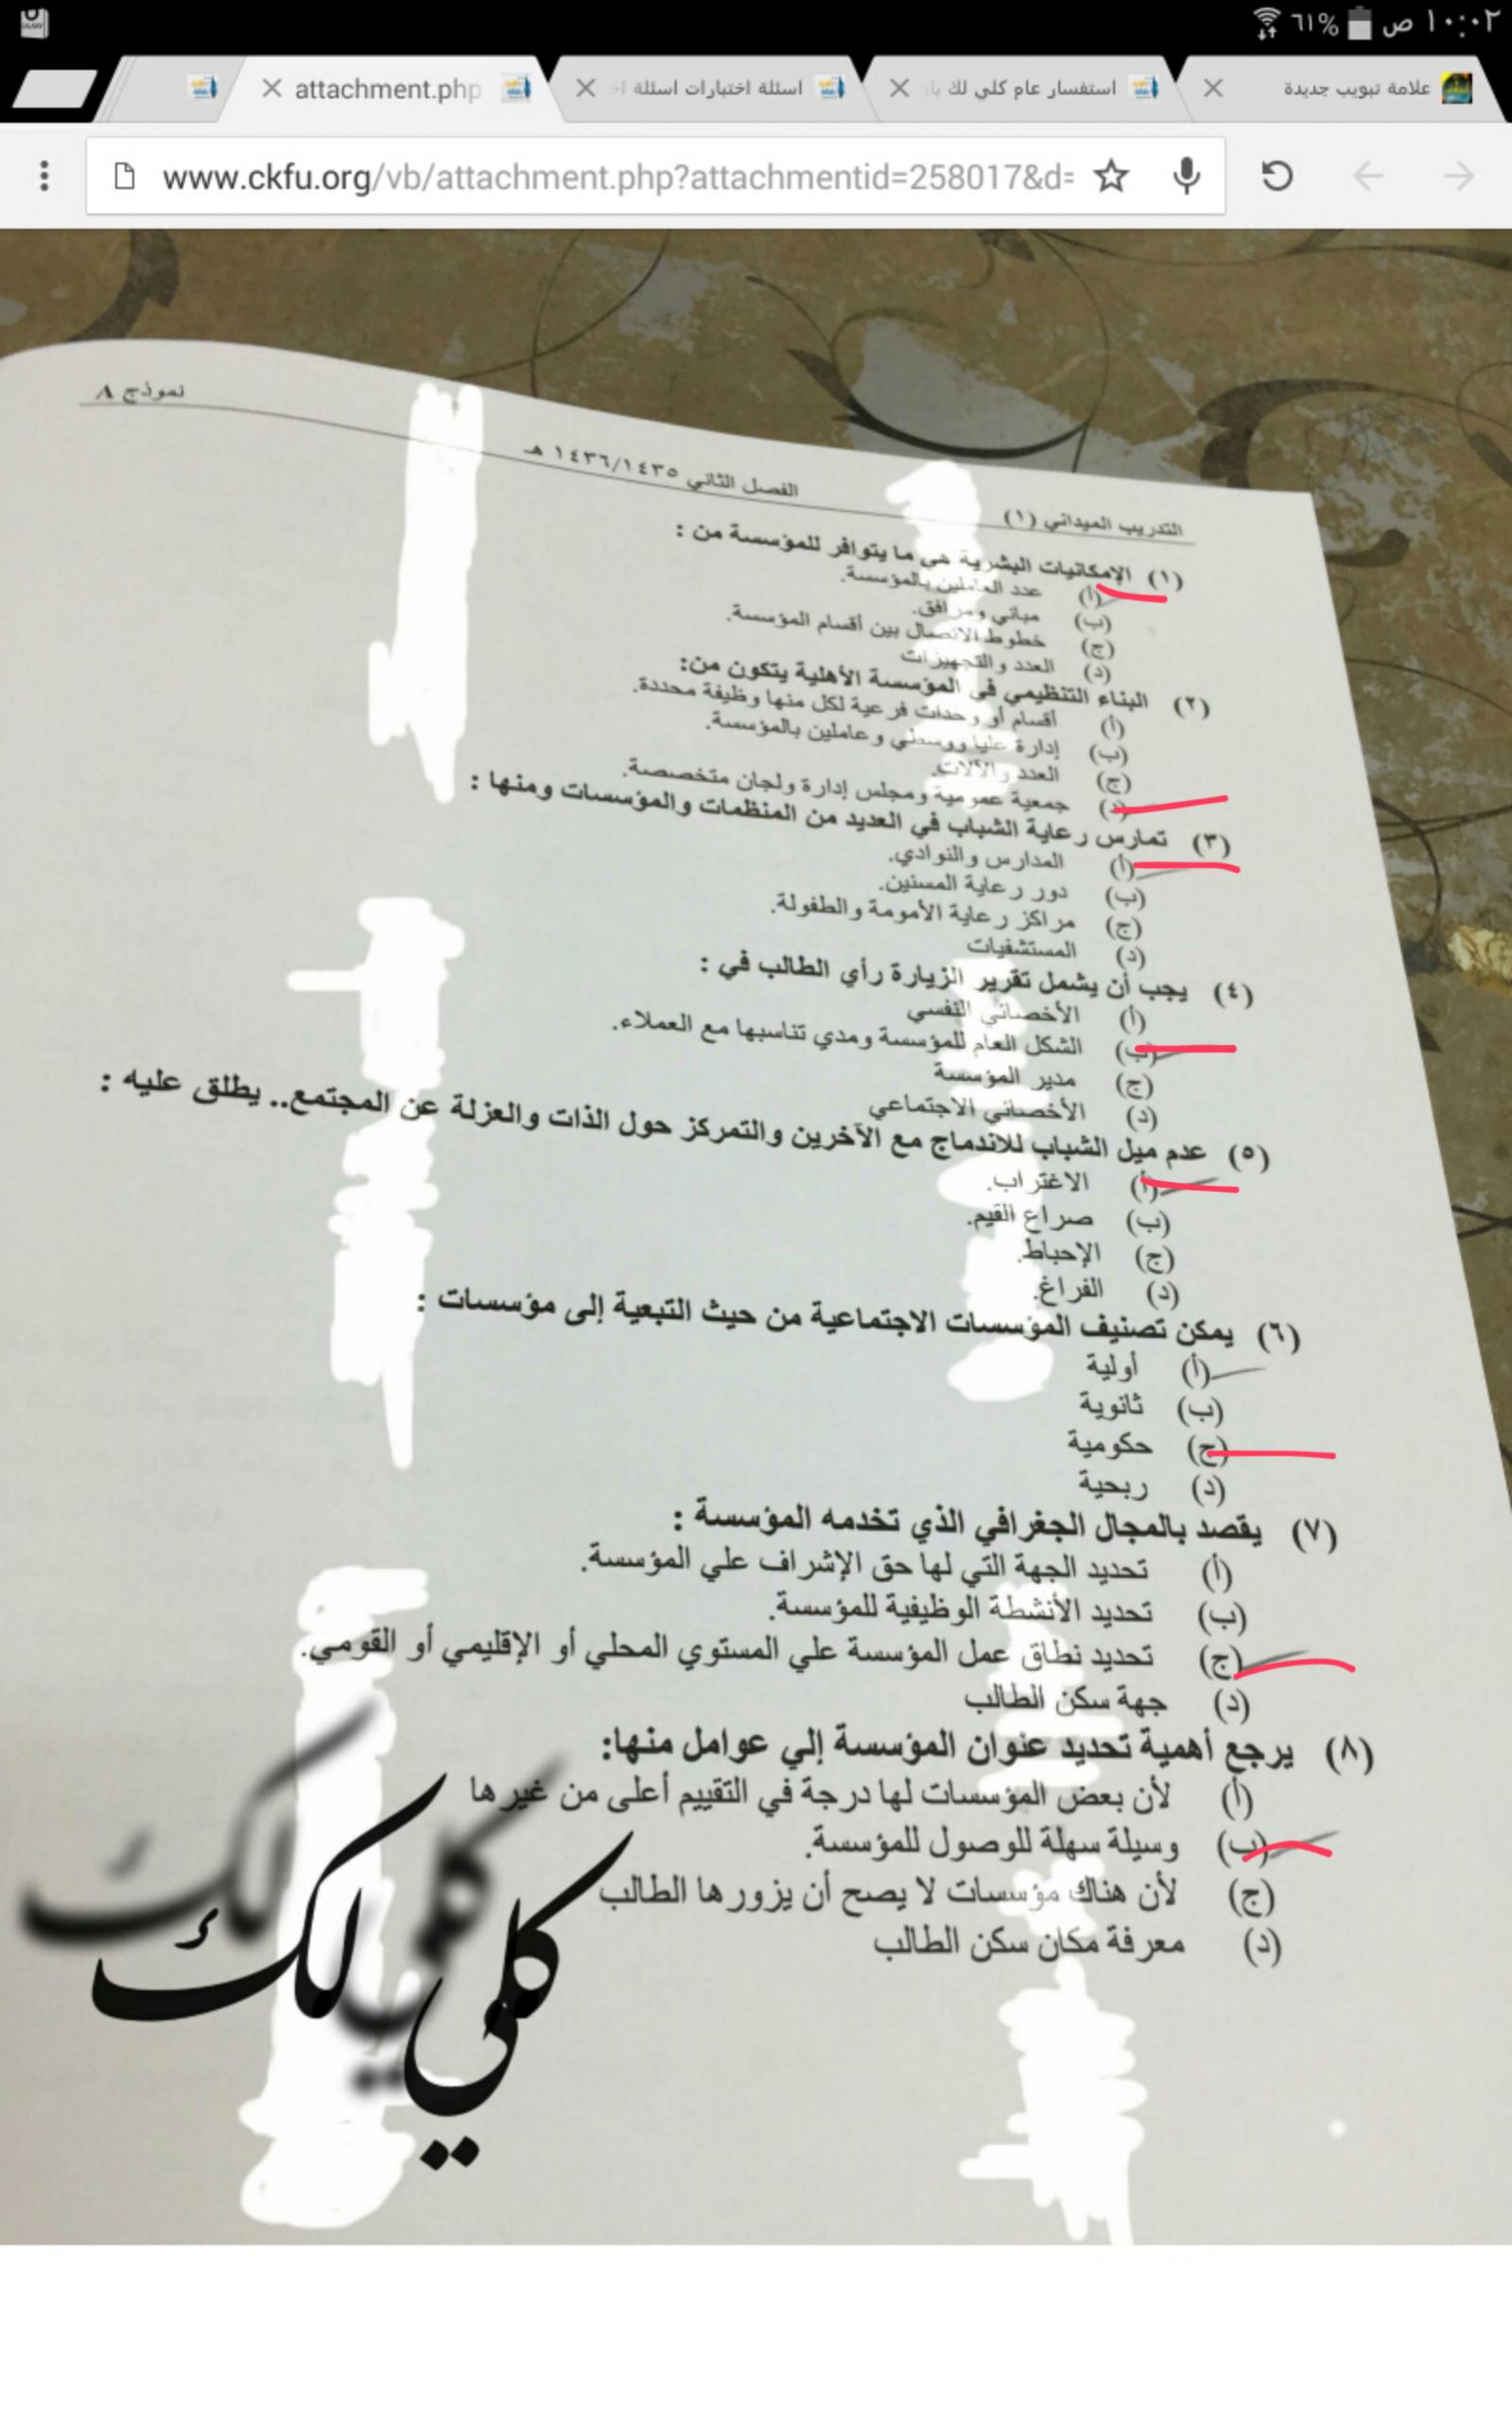 ١٠:٠٢ ص ٦١%
علامة تبويب جديدة
استفسار عام كلي لك
اسئلة اختبارات اسئلة
attachment.php
www.ckfu.org/vb/attachment.php?attachmentid=258017&d=
نموذج ٨
الفصل الثاني ١٤٣٦/١٤٣٥ هـ
التدريب الميداني (١)
(١) الإمكانيات البشرية هي ما يتوافر للمؤسسة من :
(أ) عدد العاملين بالمؤسسة.
(ب) مباني ومرافق.
(ج) خطوط الاتصال بين أقسام المؤسسة.
(د) العدد والتجهيزات
(٢) البناء التنظيمي في المؤسسة الأهلية يتكون من:
(أ) أقسام أو وحدات فرعية لكل منها وظيفة محددة.
(ب) إدارة عليا ووسطي وعاملين بالمؤسسة.
(ج) العدد والآلات.
(د) جمعية عمومية ومجلس إدارة ولجان متخصصة.
(٣) تمارس رعاية الشباب في العديد من المنظمات والمؤسسات ومنها :
(أ) المدارس والنوادي.
(ب) دور رعاية المسنين.
(ج) مراكز رعاية الأمومة والطفولة.
(د) المستشفيات
(٤) يجب أن يشمل تقرير الزيارة رأي الطالب في :
(أ) الأخصائي النفسي
(ب) الشكل العام للمؤسسة ومدي تناسبها مع العملاء.
(ج) مدير المؤسسة
(د) الأخصائي الاجتماعي
(٥) عدم ميل الشباب للاندماج مع الآخرين والتمركز حول الذات والعزلة عن المجتمع.. يطلق عليه :
(أ) الاغتراب.
(ب) صراع القيم.
(ج) الإحباط.
(د) الفراغ.
(٦) يمكن تصنيف المؤسسات الاجتماعية من حيث التبعية إلى مؤسسات :
(أ) أولية
(ب) ثانوية
(ج) حكومية
(د) ربحية
(٧) يقصد بالمجال الجغرافي الذي تخدمه المؤسسة :
(أ) تحديد الجهة التي لها حق الإشراف علي المؤسسة.
(ب) تحديد الأنشطة الوظيفية للمؤسسة.
(ج) تحديد نطاق عمل المؤسسة علي المستوي المحلي أو الإقليمي أو القومي.
(د) جهة سكن الطالب
(٨) يرجع أهمية تحديد عنوان المؤسسة إلي عوامل منها:
(أ) لأن بعض المؤسسات لها درجة في التقييم أعلى من غيرها
(ب) وسيلة سهلة للوصول للمؤسسة.
(ج) لأن هناك مؤسسات لا يصح أن يزورها الطالب
(د) معرفة مكان سكن الطالب
كلي لك